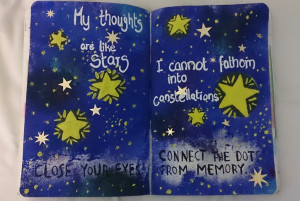 My thoughts
are like
Stars
CLOSE YOUR EYES
I cannot fathom
into
constellations
CONNECT THE DOTS
FROM MEMORY